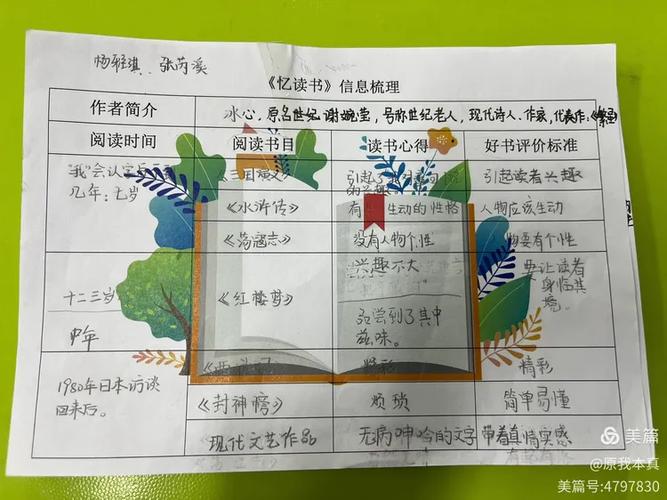 杨雅淇、张芮溪
《忆读书》信息梳理
作者简介 冰心，原名世纪谢婉莹，号称世纪老人，现代诗人、作家，代表作《繁星》
阅读时间 阅读书目 读书心得 好书评价标准
"我"会认字后 《三国演义》 引起了 引起读者兴趣
几年：七岁 的兴趣
《水浒传》 有 生动的性格 人物应该生动
《荡寇志》 没有人物个性 要有个性
十二三岁 《红楼梦》 兴趣不大 要让读者
身临其
境。
中年 尝到了其中
滋味。
1980年日本访谈
回来后。
《西游记》 精彩 精彩
《封神榜》 烦琐 简单易懂
现代文艺作品 无病呻吟的文字 带着真情实感
美篇
@原我本真
美篇号:4797830